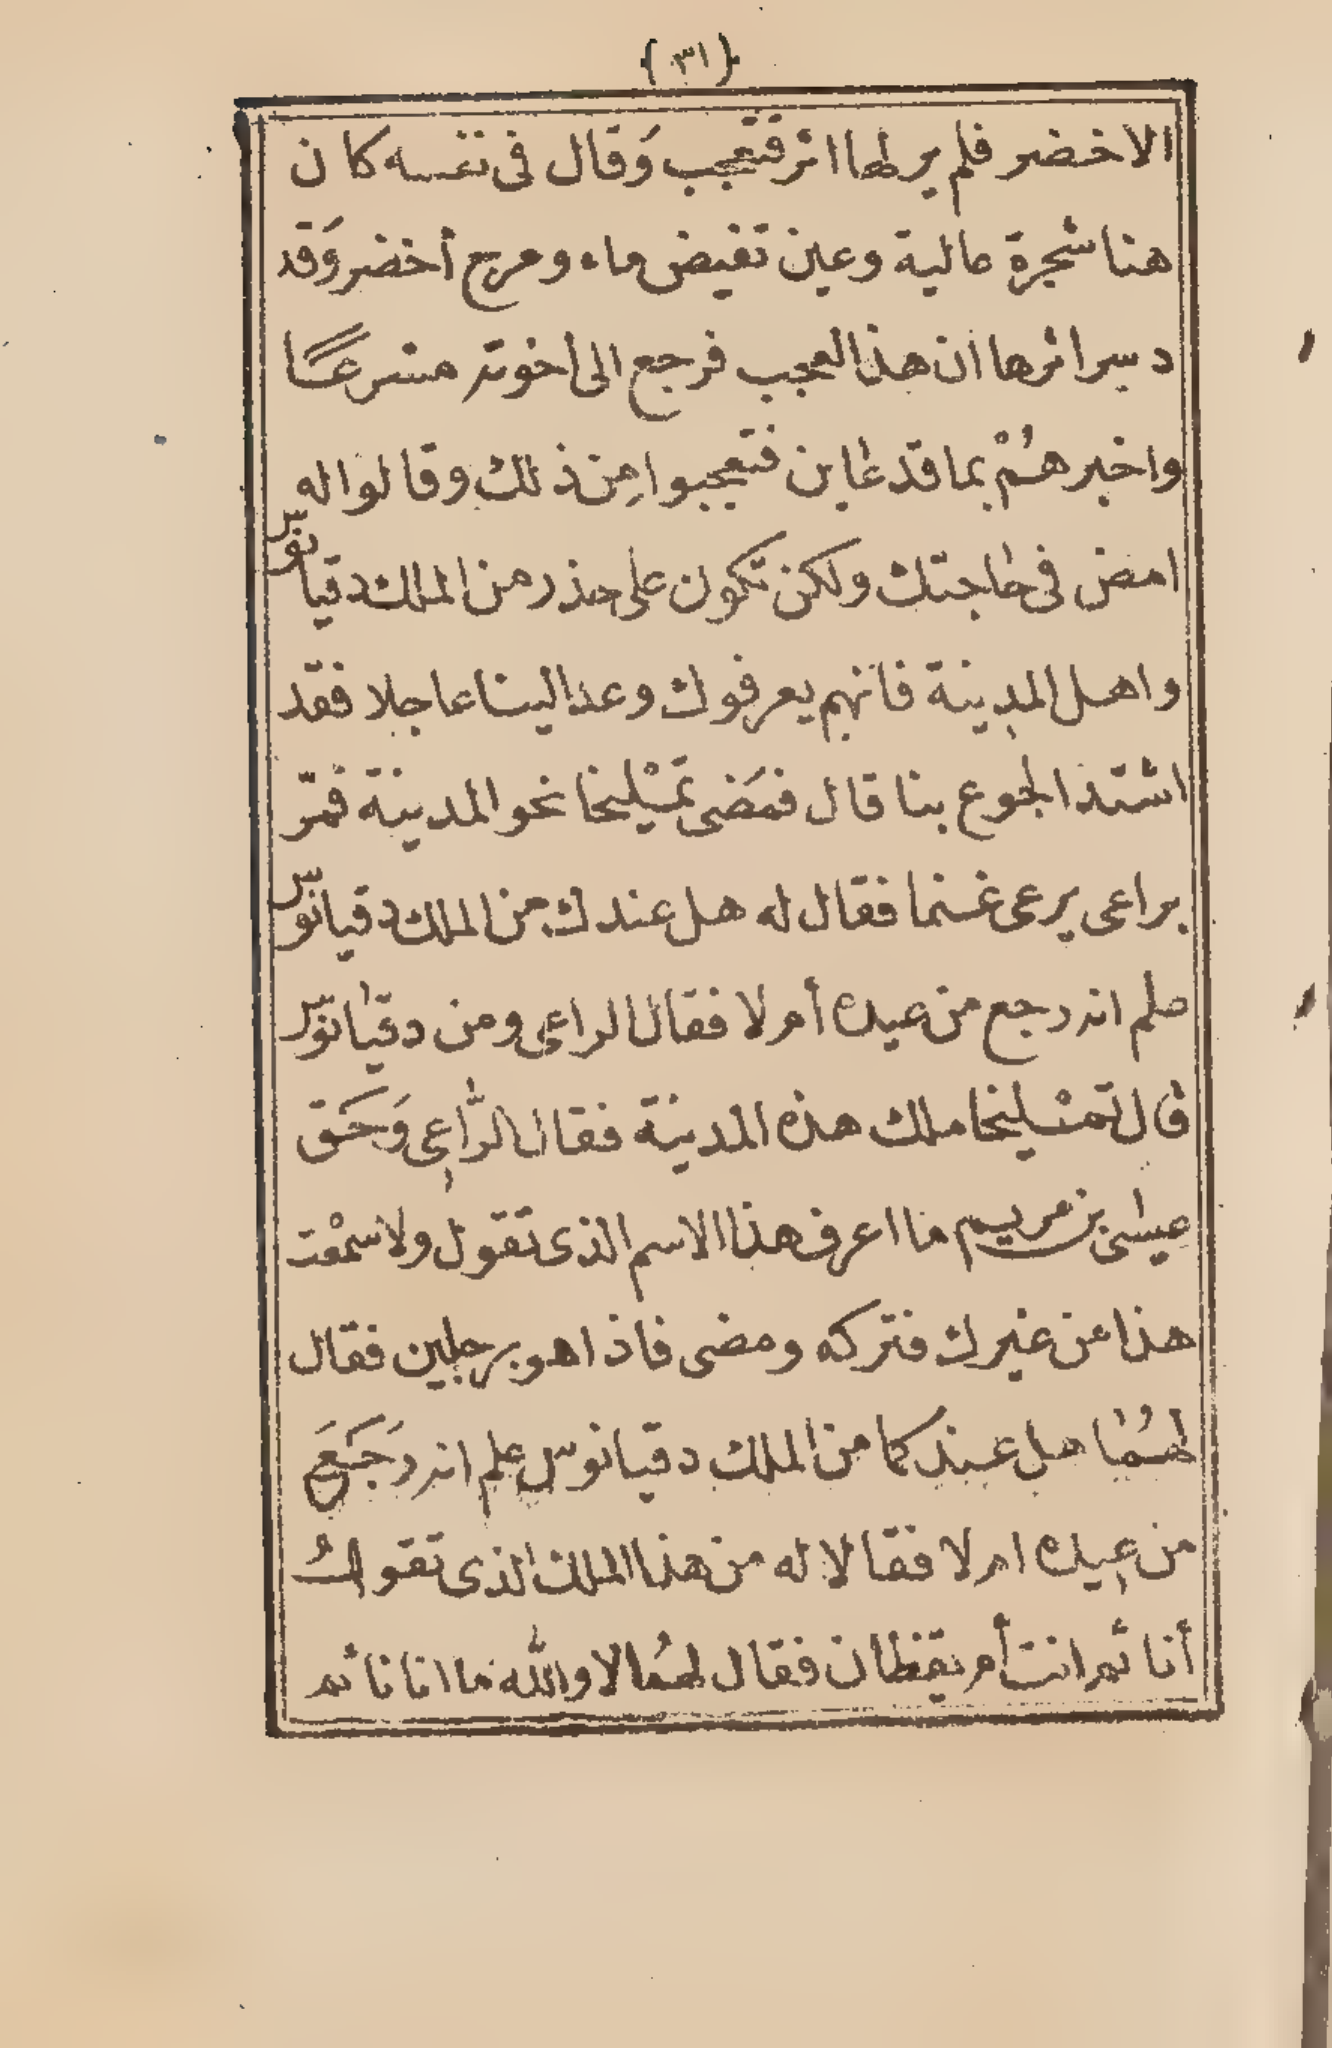 (٣١)
الاخضر فلم ير لها اثر فتعجب وَقال فى نفسه كان
هنا شجرة عالية وعين تفيض ماء ومرج أخضر وَقد
دسر اثرها ان هذا لعجب فرجع الى أخوته مسرعًا
واخبرهُمْ بما قد عاين فتعجبوا مِن ذلك وقالوا له
امض فى حاجتك ولكن تكون على حذر من الملك دقيانوس
واهل المدينة فانهم يعرفوك وعد الينا عاجلا فقد
اشتد الجوع بنا قال فمَضى تمْليخا نحو المدينة فمرّ
براعى يرعى غنما فقال له هل عندك من الملك دقيانوس
علم انه رجع من عيده أم لا فقال الراعى ومن دقيانوس
قال تمليخا ملك هذه المدينة فقال الرّاعى وَحَق
عيسى بن مريم ما اعرف هذا الاسم الذى تقول ولا سمعْت
هذا من غيرك فتركه ومضى فاذا هو برجلين فقال
لهُما هل عندكما من الملك دقيانوس علم انه رَجَعَ
من عيده ام لا فقالا له من هذا الملك الذى تقولُ
أنائم انت أم يقظان فقال لهُما لا والله ما انا نائم